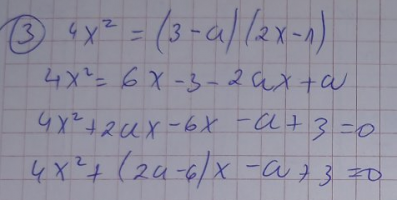 ③ 4x² = (3-a)(2x-1)
4x² = 6x - 3 - 2ax + a
4x² + 2ax - 6x - a + 3 = 0
4x² + (2a-6)x - a + 3 = 0